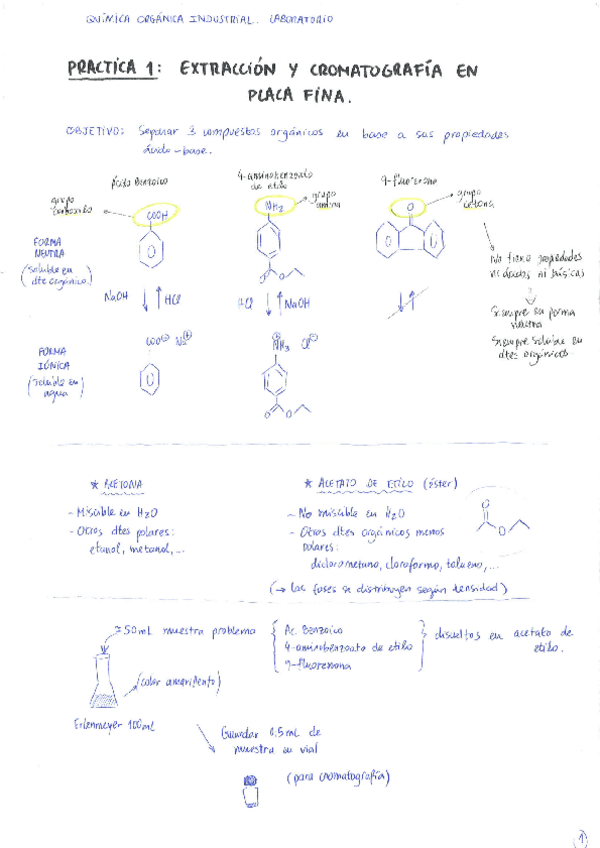 QUÍMICA ORGÁNICA INDUSTRIAL. LABORATORIO
PRACTICA 1: EXTRACCIÓN Y CROMATOGRAFÍA EN
PLACA FINA.
OBJETIVO: Separar 3 compuestos orgánicos en base a sus propiedades
ácido-base.
Ácido Benzoico
4-aminobenzoato
de etilo
9-fluorenona
grupo
carboxilo
COOH
NH2
grupo
amina
O
grupo
cetona
FORMA
NEUTRA
(Soluble en
dte orgánico)
O
O
No tiene propiedades
ni ácidas ni básicas
NaOH
HCl
HCl
NaOH
Siempre en forma
neutra
Siempre soluble en
dtes orgánicos
FORMA
IÓNICA
(Soluble en
agua)
COO⊖ Na⊕
⊕
NH3 Cl⊖
O
O
* ACETONA
- Miscible en H2O
- Otros dtes polares:
etanol, metanol, ...
* ACETATO DE ETILO (éster)
- No miscible en H2O
- Otros dtes orgánicos menos
polares:
diclorometano, cloroformo, tolueno, ...
(→ las fases se distribuyen según densidad)
O
O
50mL muestra problema
Ac. Benzoico
4-aminobenzoato de etilo
9-fluorenona
disueltos en acetato de
etilo.
(color amarillento)
Erlenmeyer 100mL
Guardar 0.5mL de
muestra en vial
(para cromatografía)
1